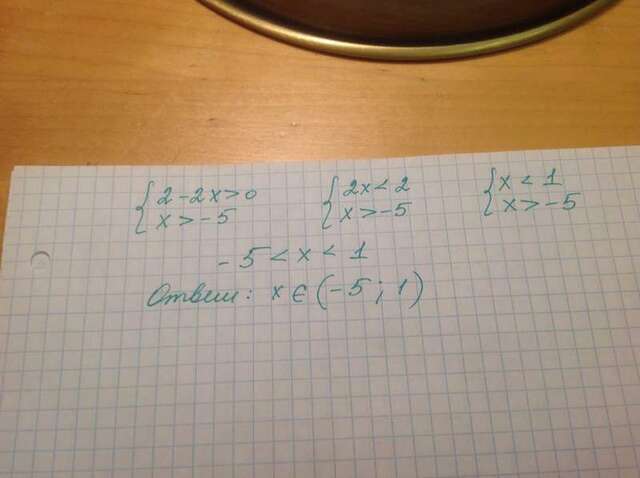 {2-2x>0 {2x<2 {x<1
{x>-5 {x>-5 {x>-5
-5<x<1
Ответ: x∈(-5;1)